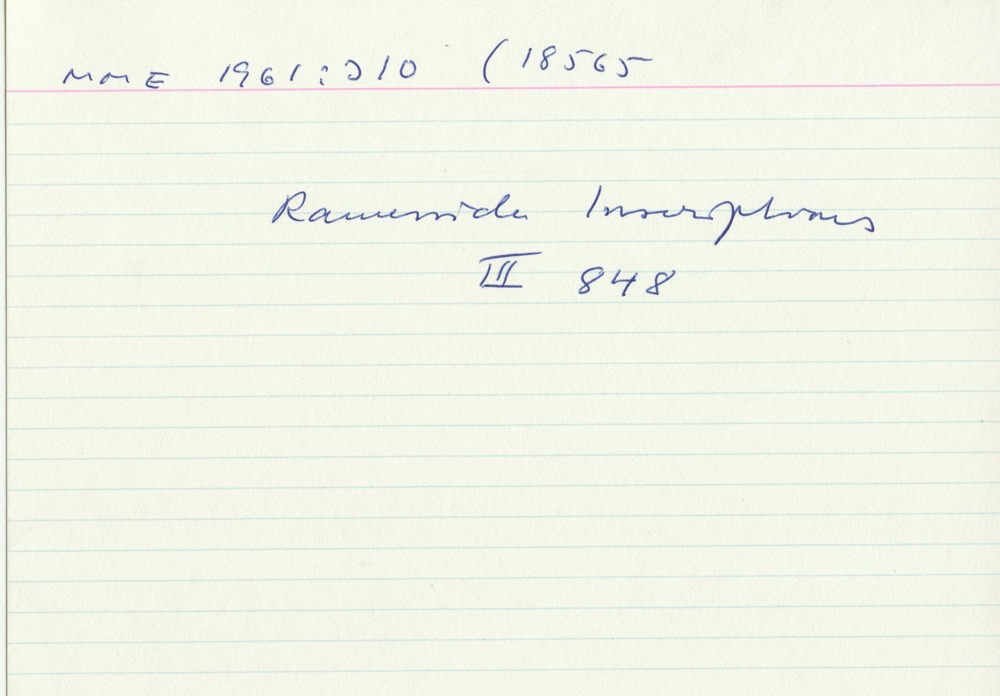 MME 1961:310 (18565
Ramesside Inscriptions
III 848